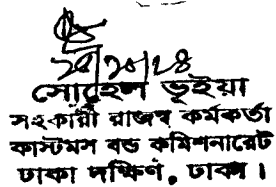 ২৫/১০/২৪
সোহেল ভূইয়া
সহকারী রাজস্ব কর্মকর্তা
কাস্টমস বন্ড কমিশনারেট
ঢাকা দক্ষিণ, ঢাকা।